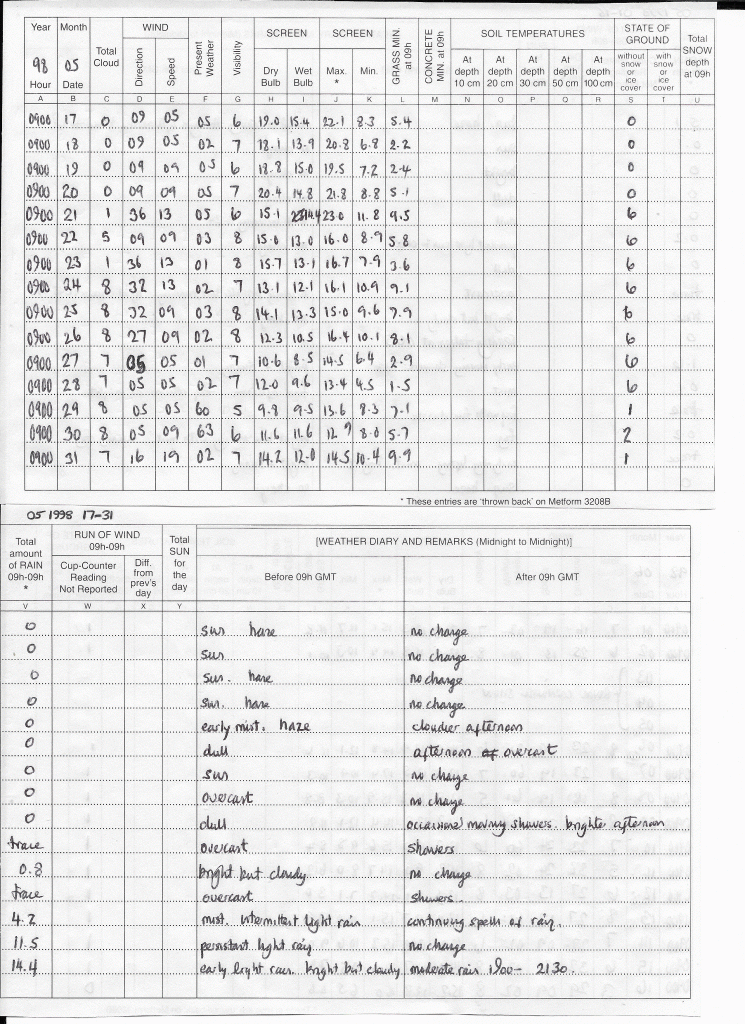 Year Month Total Cloud WIND Direction Speed Present Weather Visibility SCREEN Dry Bulb Wet Bulb SCREEN Max. * Min. GRASS MIN. at 09h CONCRETE MIN. at 09h SOIL TEMPERATURES At depth 10 cm At depth 20 cm At depth 30 cm At depth 50 cm At depth 100 cm STATE OF GROUND without snow or ice cover with snow or ice cover Total SNOW depth at 09h
98 05
Hour Date
A B C D E F G H I J K L M N O P Q R S T U
0900 17 0 09 05 05 6 19.0 15.4 22.1 8.3 5.4 0
0900 18 0 09 05 02 7 18.1 13.9 20.8 6.8 2.2 0
0900 19 0 09 09 05 6 18.8 15.0 19.5 7.2 2.4 0
0900 20 0 09 09 05 7 20.4 14.8 21.8 8.8 5.1 0
0900 21 1 36 13 05 6 15.1 14.4 23.0 11.8 9.5 6
0900 22 5 09 09 03 8 15.0 13.0 16.0 8.9 5.8 6
0900 23 1 36 13 01 8 15.7 13.1 16.7 7.9 3.6 6
0900 24 8 32 13 02 7 13.1 12.1 16.1 10.9 9.1 6
0900 25 8 32 09 03 8 14.1 13.3 15.0 9.6 7.9 6
0900 26 8 27 09 02 8 12.3 10.5 16.4 10.1 8.1 6
0900 27 7 05 05 01 7 10.6 8.5 14.5 6.4 2.9 6
0900 28 7 05 05 02 7 12.0 9.6 13.4 4.5 1.5 6
0900 29 8 05 05 60 5 9.8 9.5 13.6 8.3 7.1 1
0900 30 8 05 09 63 6 11.6 11.6 12.9 8.0 5.7 2
0900 31 7 16 19 02 7 14.2 12.0 14.5 10.4 9.9 1
* These entries are 'thrown back' on Metform 3208B
05 1998 17-31
Total amount of RAIN 09h-09h * RUN OF WIND 09h-09h Cup-Counter Reading Not Reported Diff. from prev's day Total SUN for the day [WEATHER DIARY AND REMARKS (Midnight to Midnight)]
Before 09h GMT After 09h GMT
V W X Y
0 sun haze no change
0 sun no change
0 sun. haze no change
0 sun. haze no change
0 early mist. haze cloudier afternoon
0 dull afternoon overcast
0 sun no change
0 overcast no change
0 dull occasional morning showers. brighter afternoon
trace overcast showers
0.8 bright but cloudy no change
trace overcast showers.
4.2 mist. intermittent light rain continuing spells of rain.
11.5 persistant light rain no change
14.4 early light rain. bright but cloudy moderate rain 1900 - 2130.